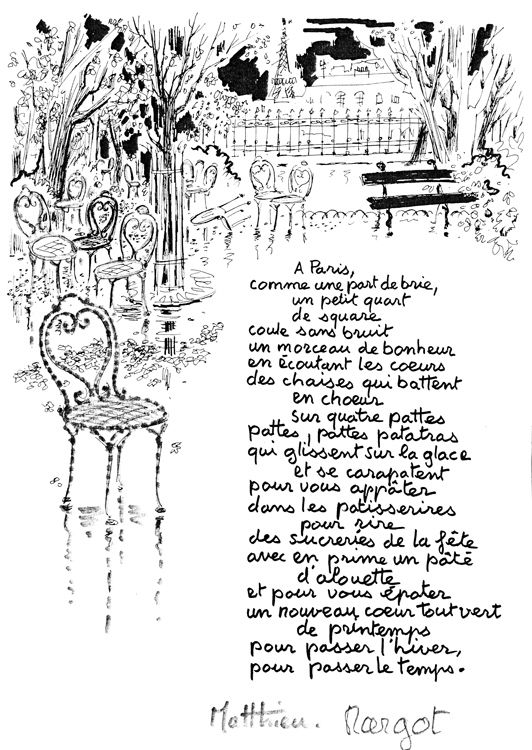 A Paris,
comme une part de brie,
un petit quart
de square
coule sans bruit
un morceau de bonheur
en écoutant les coeurs
des chaises qui battent
en choeur
sur quatre pattes
pattes, pattes patatras
qui glissent sur la glace
et se carapatent
pour vous appâter
dans les potisserires
pour rire
des sucreries de la fête
avec en prime un pâté
d'alouette
et pour vous épater
un nouveau coeur tout vert
de printemps
pour passer l'hiver,
pour passer le temps.
Matthieu. Margot